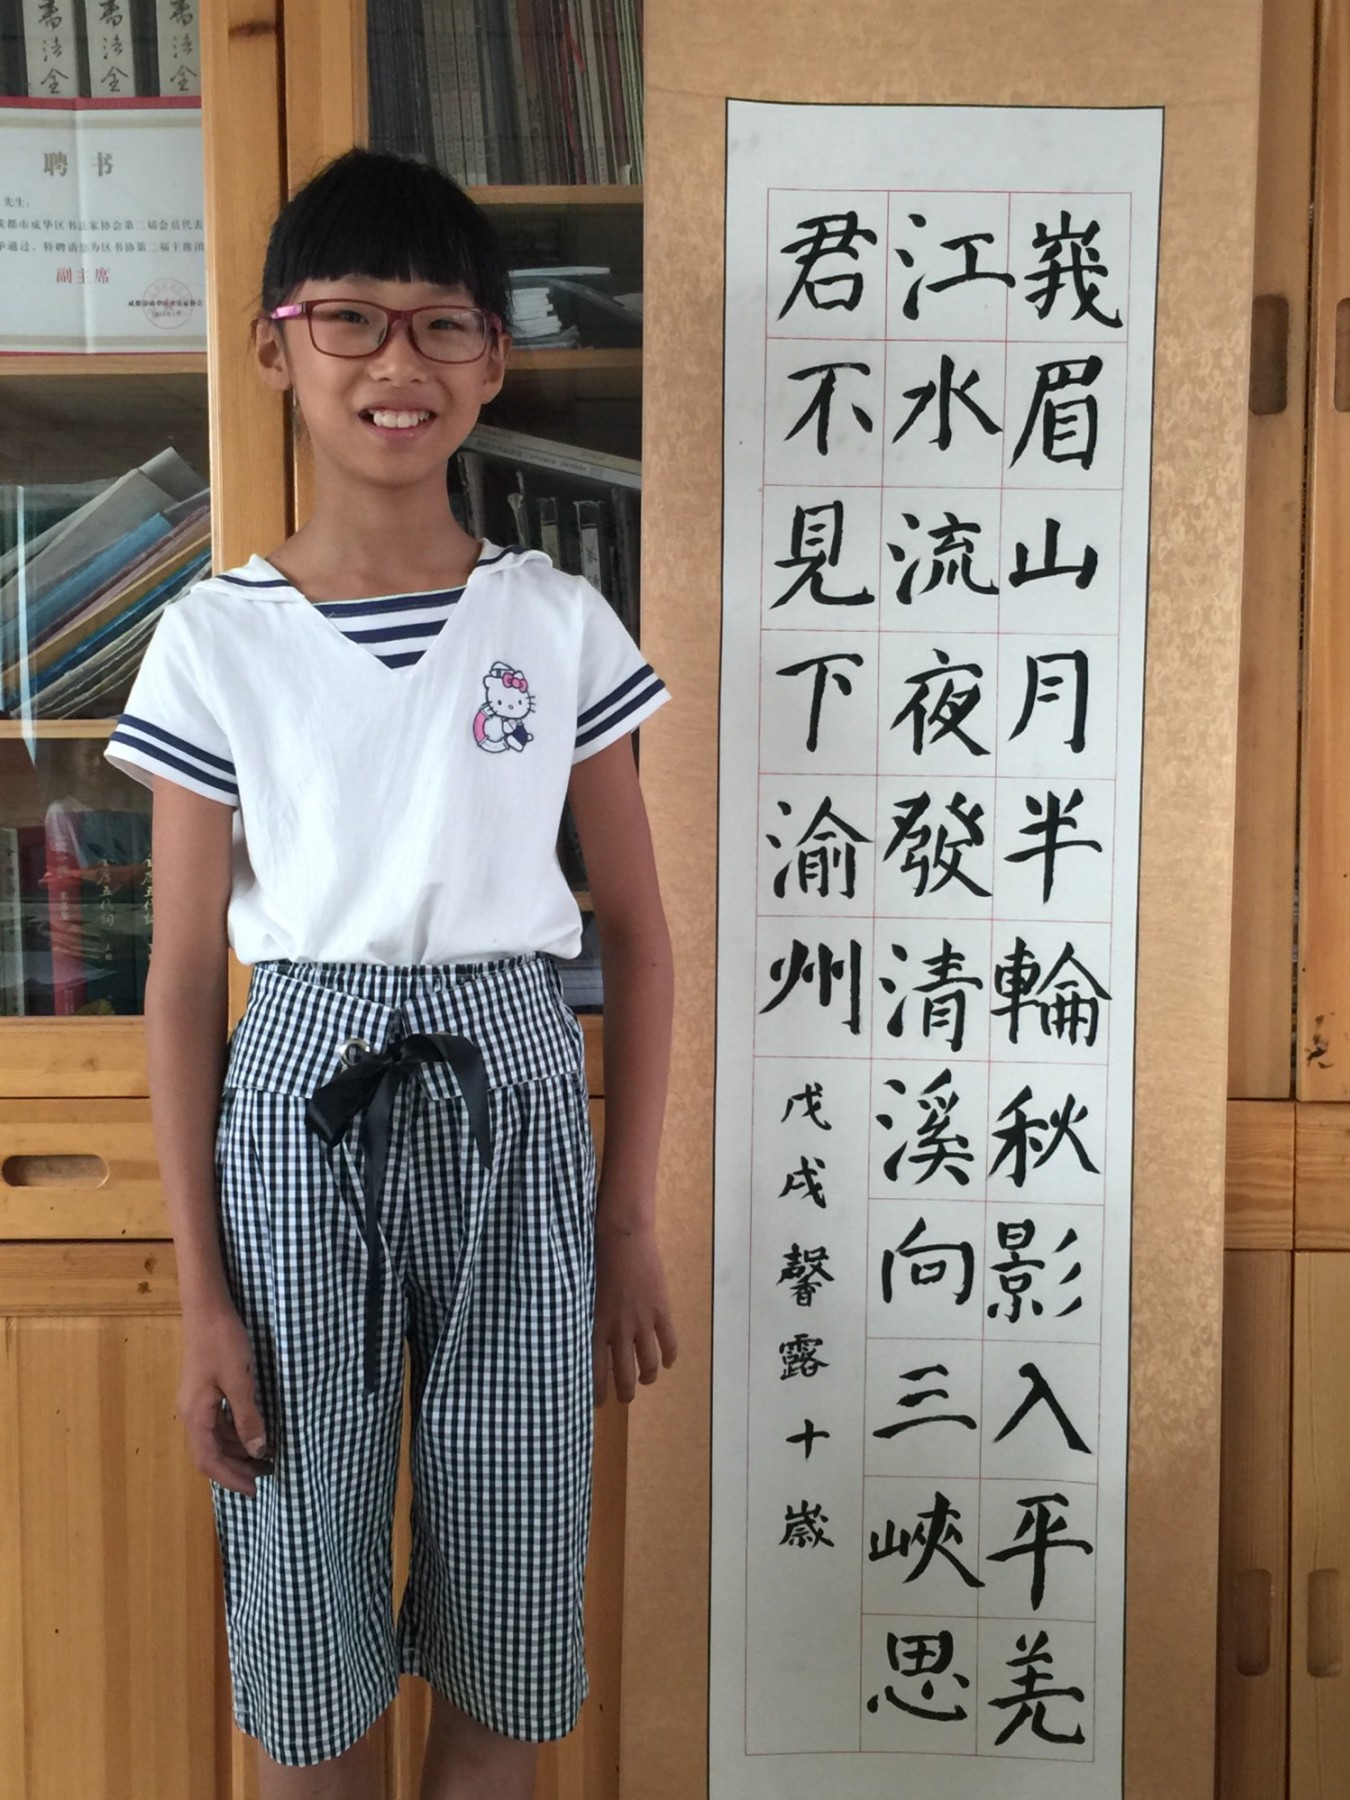 書法全
書法全
書法全
聘 书
先生：
成都市成华区书法家协会第二届会员代表
通过，特聘请您为区书协第二届主席团
副主席
成都市成华区书法家协会
峩眉山月半輪秋影入平羌
江水流夜發清溪向三峽思
君不見下渝州
戊戌馨露十歲